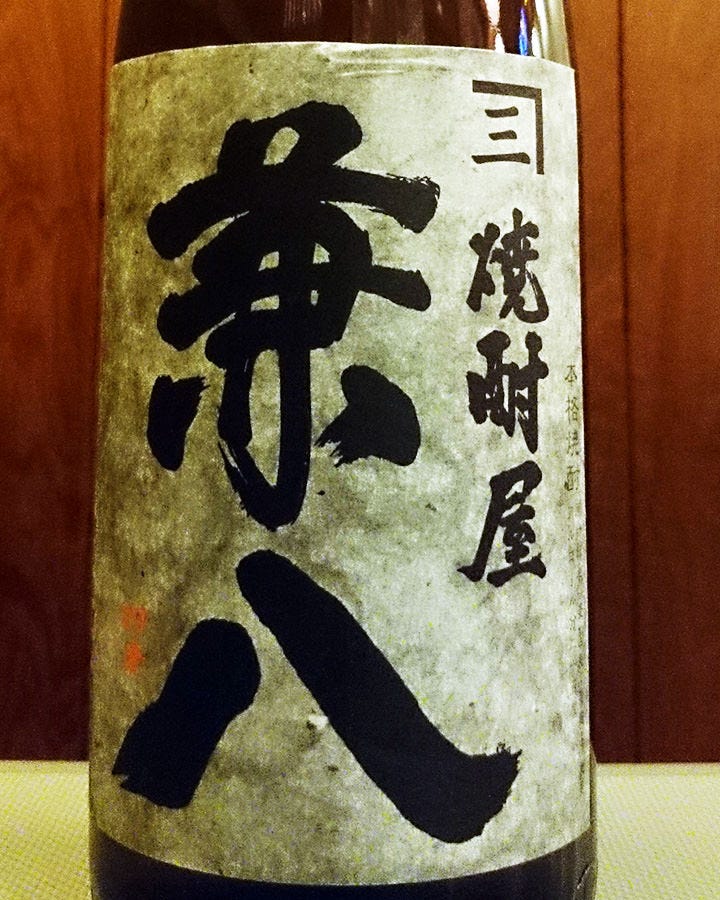 三
焼酎屋
兼八
本格焼酎